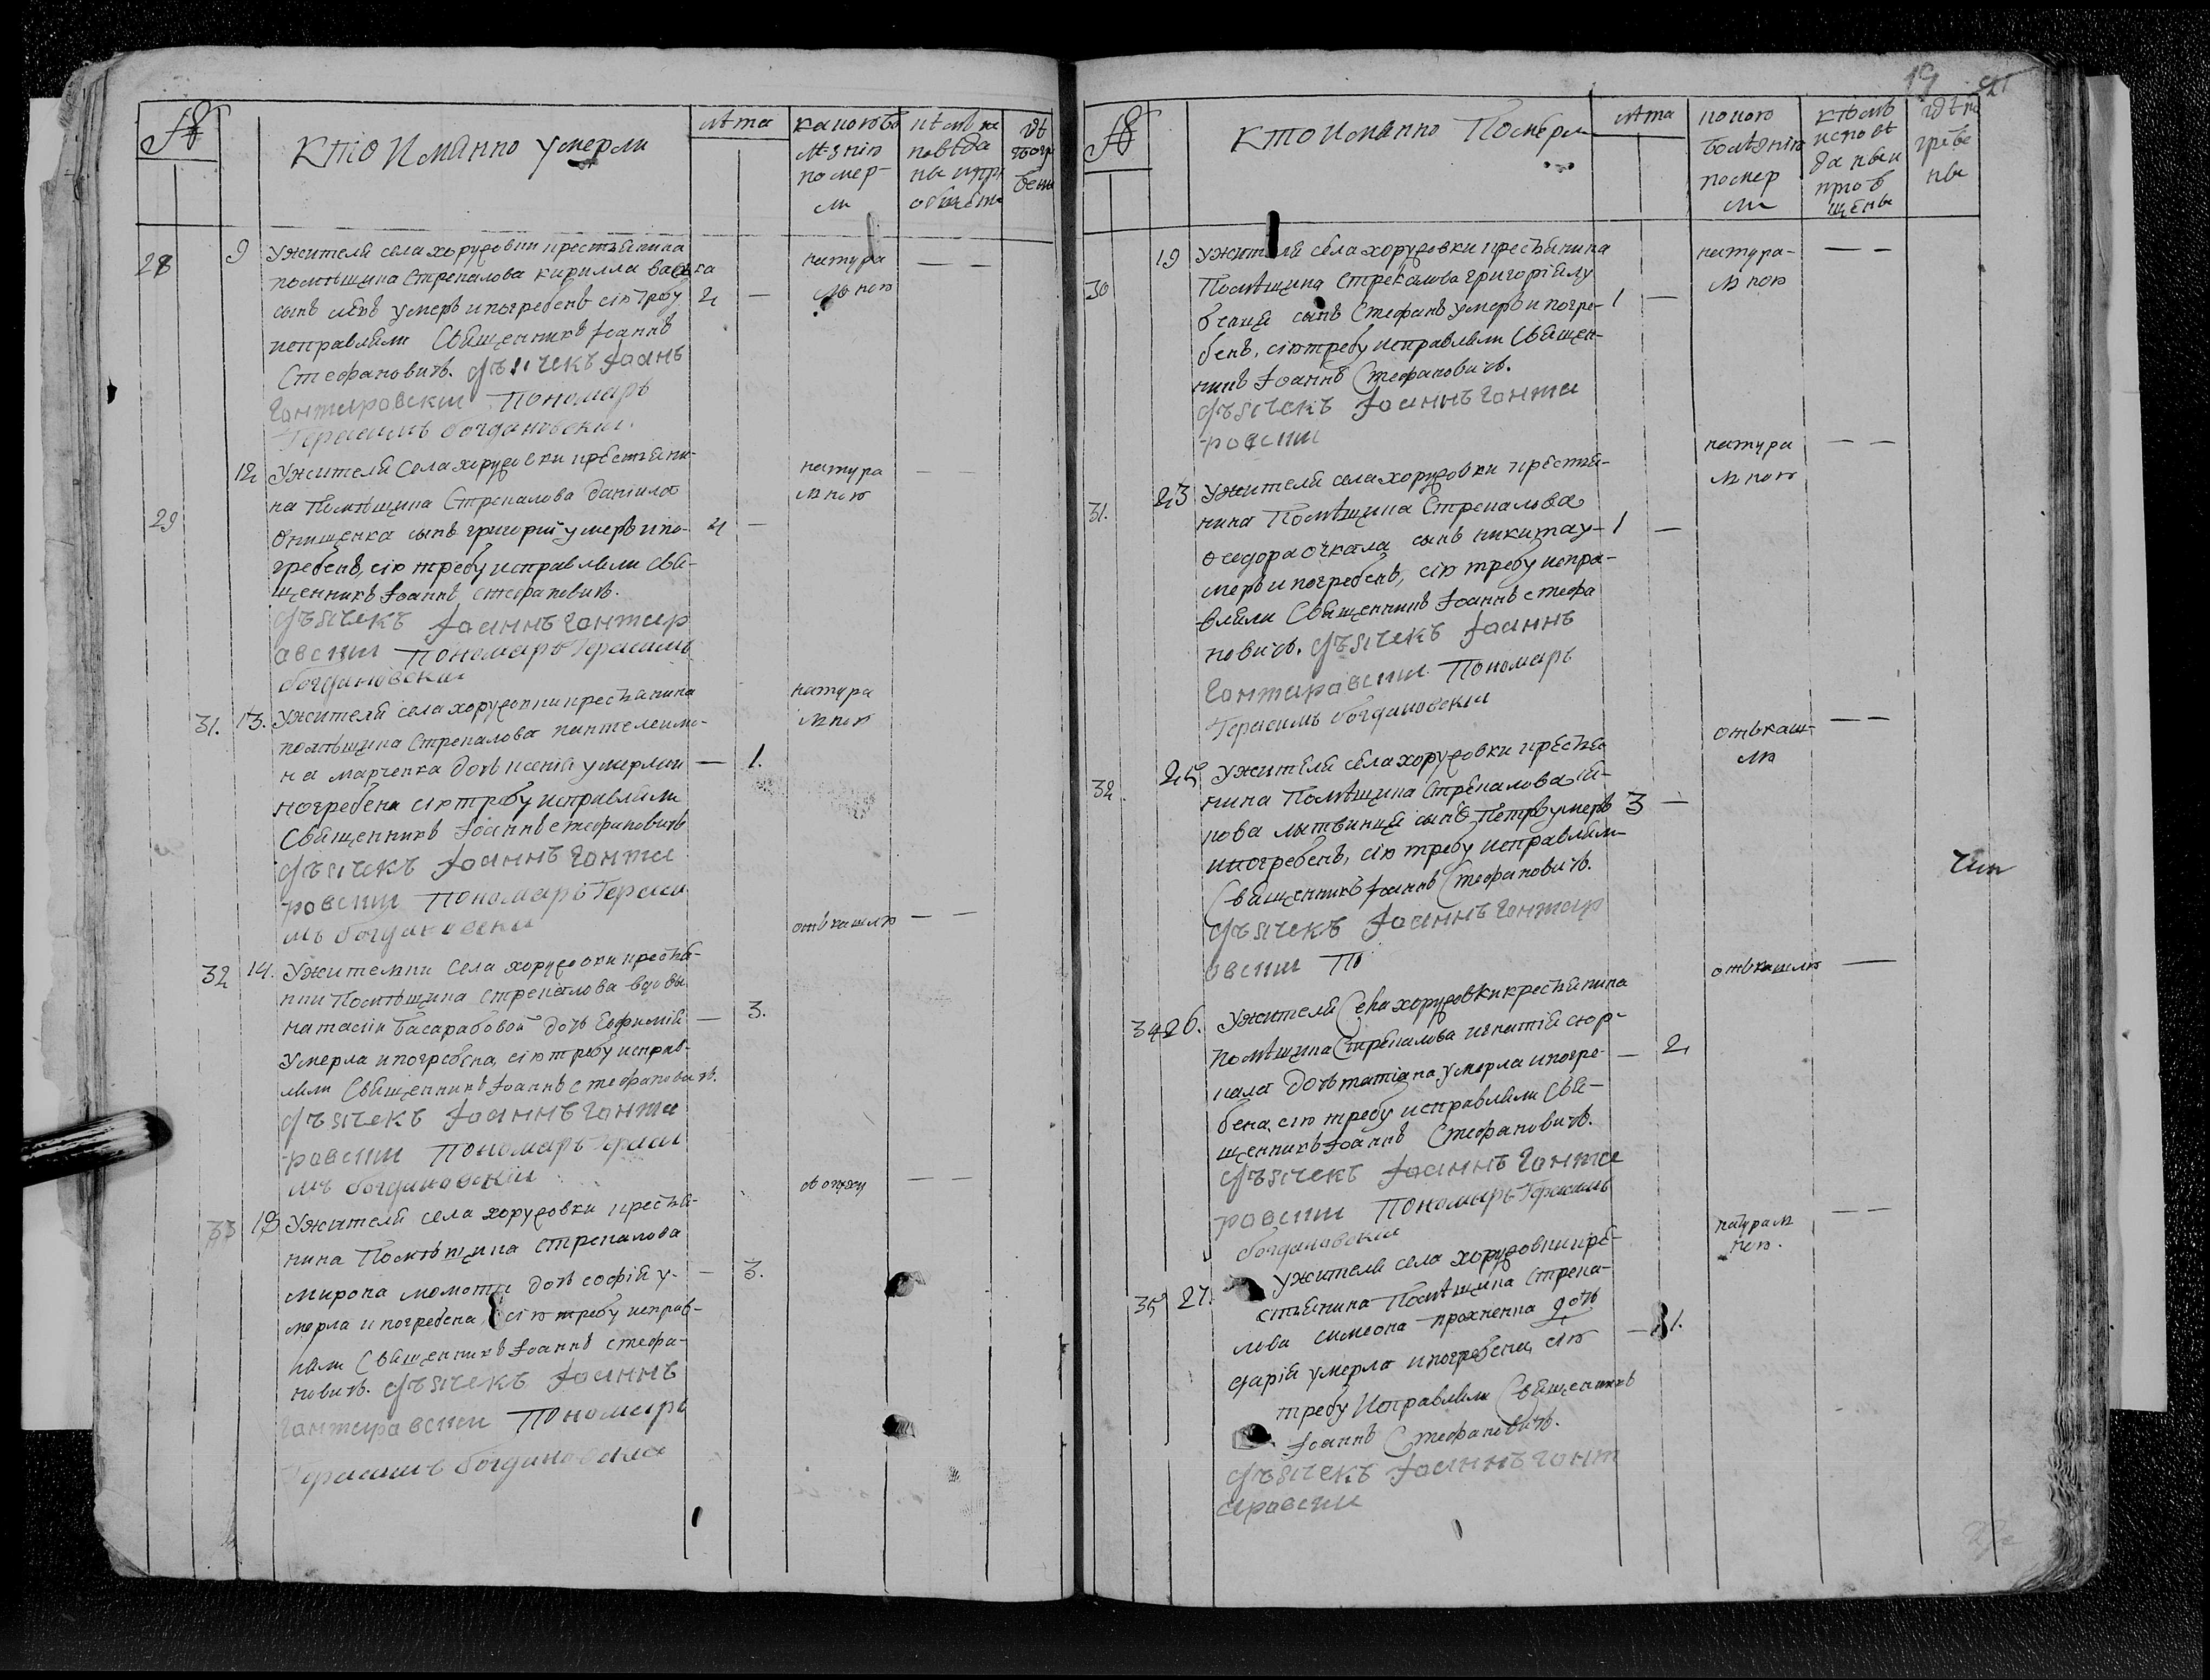 №
Кто Имянно умерли
лѣта
какою бо
лѣзнію
помер-
ли
гдѣ
погр
бены
28
9
Ужителя села хоруговки крестьянина
помѣщика Стрекалова Кирилла
сынъ умеръ и погребенъ сію требу
2 —
натура
лною
— —
исправляли Священникъ Іоаннъ
Стефановичъ. Дьячекъ Іоанъ
Гонтаровскии Пономарь
Герасимъ Богдановскии.
29
12
Ужителя Села хоруговки крестьяни-
на Помѣщика Стрекалова Даніила
Онищенка сынъ григорій умеръ ипо-
—
натура
лною
— —
гребенъ, сію требу исправляли Свя-
щенникъ Іоаннъ Стефановичъ.
Дьячекъ Іоаннъ Гонтар
овскии Пономарь Герасимъ
Богдановскии
31. 13.
Ужителя села хоруговки крестьанина
помѣщика Стрекалова пантелеимо-
на марченка дочь ксенія умерла и
— 1.
натура
лною
погребена сію требу исправляли
Священникъ Іоаннъ Стефановичъ
Дьячекъ Іоаннъ Гонта
ровскии Пономарь Гераси
мъ Богдановскии
32 14.
Ужителки Села хоруговки крестья-
нки Помѣщика Стрекалова вдовы
наталіи Басарабовой дочь Евфимія
— 3.
отъ кашлю
— —
умерла и погребена, сію требу исправ-
ляли Священникъ Іоаннъ Стефановичъ.
Дьячекъ Іоаннъ Гонта
ровскии Пономарь Гераси
мъ Богдановскіи
33
Ужителя села хоруговки крестья-
нина Помѣщика Стрекалова
мирона момота дочь софія у-
— 3.
— —
мерла и погребена, сію требу исправ-
ляли Священникъ Іоаннъ Стефа-
новичъ. Дьячекъ Іоаннъ
Гонтаровскии Пономарь
Герасимъ Богдановскіи
19
№
Кто Имянно Померли
лѣта
какою
болѣзнію
помер
ли
кѣмъ
исповѣ
даны и
приоб
щены
гдѣ по
гребе
ны
30
19
Ужителя села хоруговки кресьянина
Помѣщика Стрекалова григорія
сынъ Стефанъ умеръ и погре-
1 —
натура-
лною
— —
бенъ, сію требу исправляли Священ-
никъ Іоаннъ Стефановичъ.
Дьячекъ Іоаннъ Гонта
ровскии
31.
23
Ужителя села хоруговки крестья-
нина Помѣщика Стрекалова
Ѳеодора очкала сынъ никита у-
1 —
натура
лною
— —
меръ и погребенъ, сію требу испра-
вляли Священникъ Іоаннъ Стефа
новичъ. Дьячекъ Іоаннъ
Гонтаровскии Пономарь
Герасимъ Богдановскіи
32
25
Ужителя села хоруговки кресья
нина Помѣщика Стрекалова Iя-
кова литвинця сынъ Петръ умеръ
3 —
отъ каш-
лю
— —
и погребенъ, сію требу исправляли
Священникъ Іоаннъ Стефановичъ.
Дьячекъ Іоаннъ Гонтар
овскии По
34 26.
Ужителя Села хоруговки кресьянина
помѣщика Стрекалова игнатія скор-
кала дочь татіана умерла и погре-
— 2
отъ кашлю
—
бена, сію требу исправляли Свя-
щенникъ Іоаннъ Стефановичъ.
Дьячекъ Іоаннъ Гонта
ровскии Пономарь Герасимъ
Богдановскіи
35 27.
Ужителя села хоруговки кре-
стьянина Помѣщика Стрека-
лова симеона дочь
дарія умерла и погребена, сію
— 1.
натурал
ною.
— —
требу Исправляли Священникъ
Іоаннъ Стефановичъ.
Дьячекъ Іоаннъ Гонт
аровскии